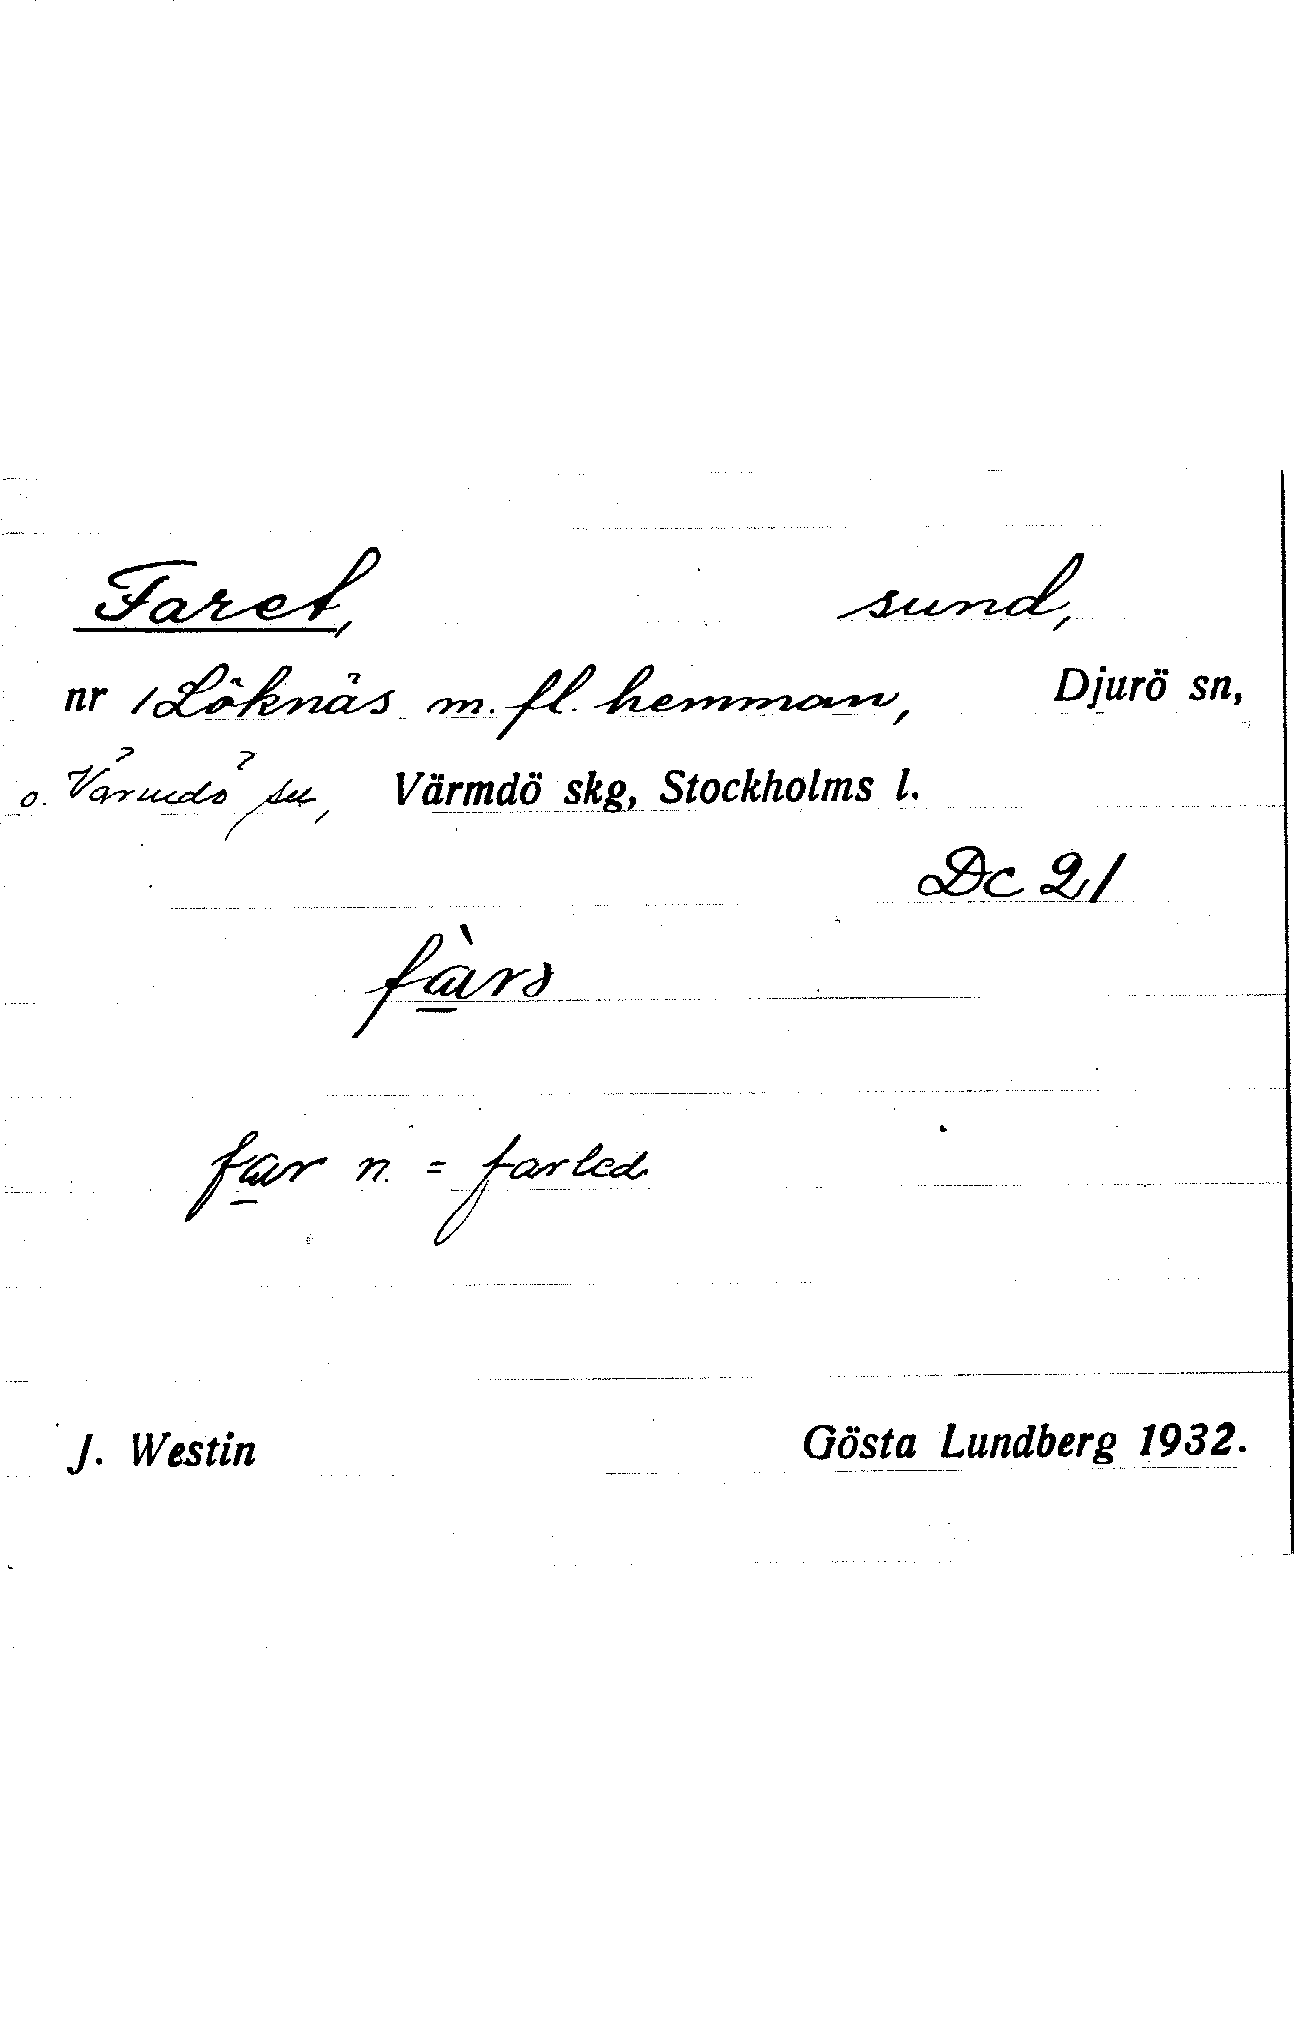 Faret, sund,
nr 1 Löknäs m. fl. hemman, Djurö sn,
o. Värmdö sn, Värmdö skg, Stockholms l.
Dc 21
fàrə
far n. = farled
J. Westin Gösta Lundberg 1932.